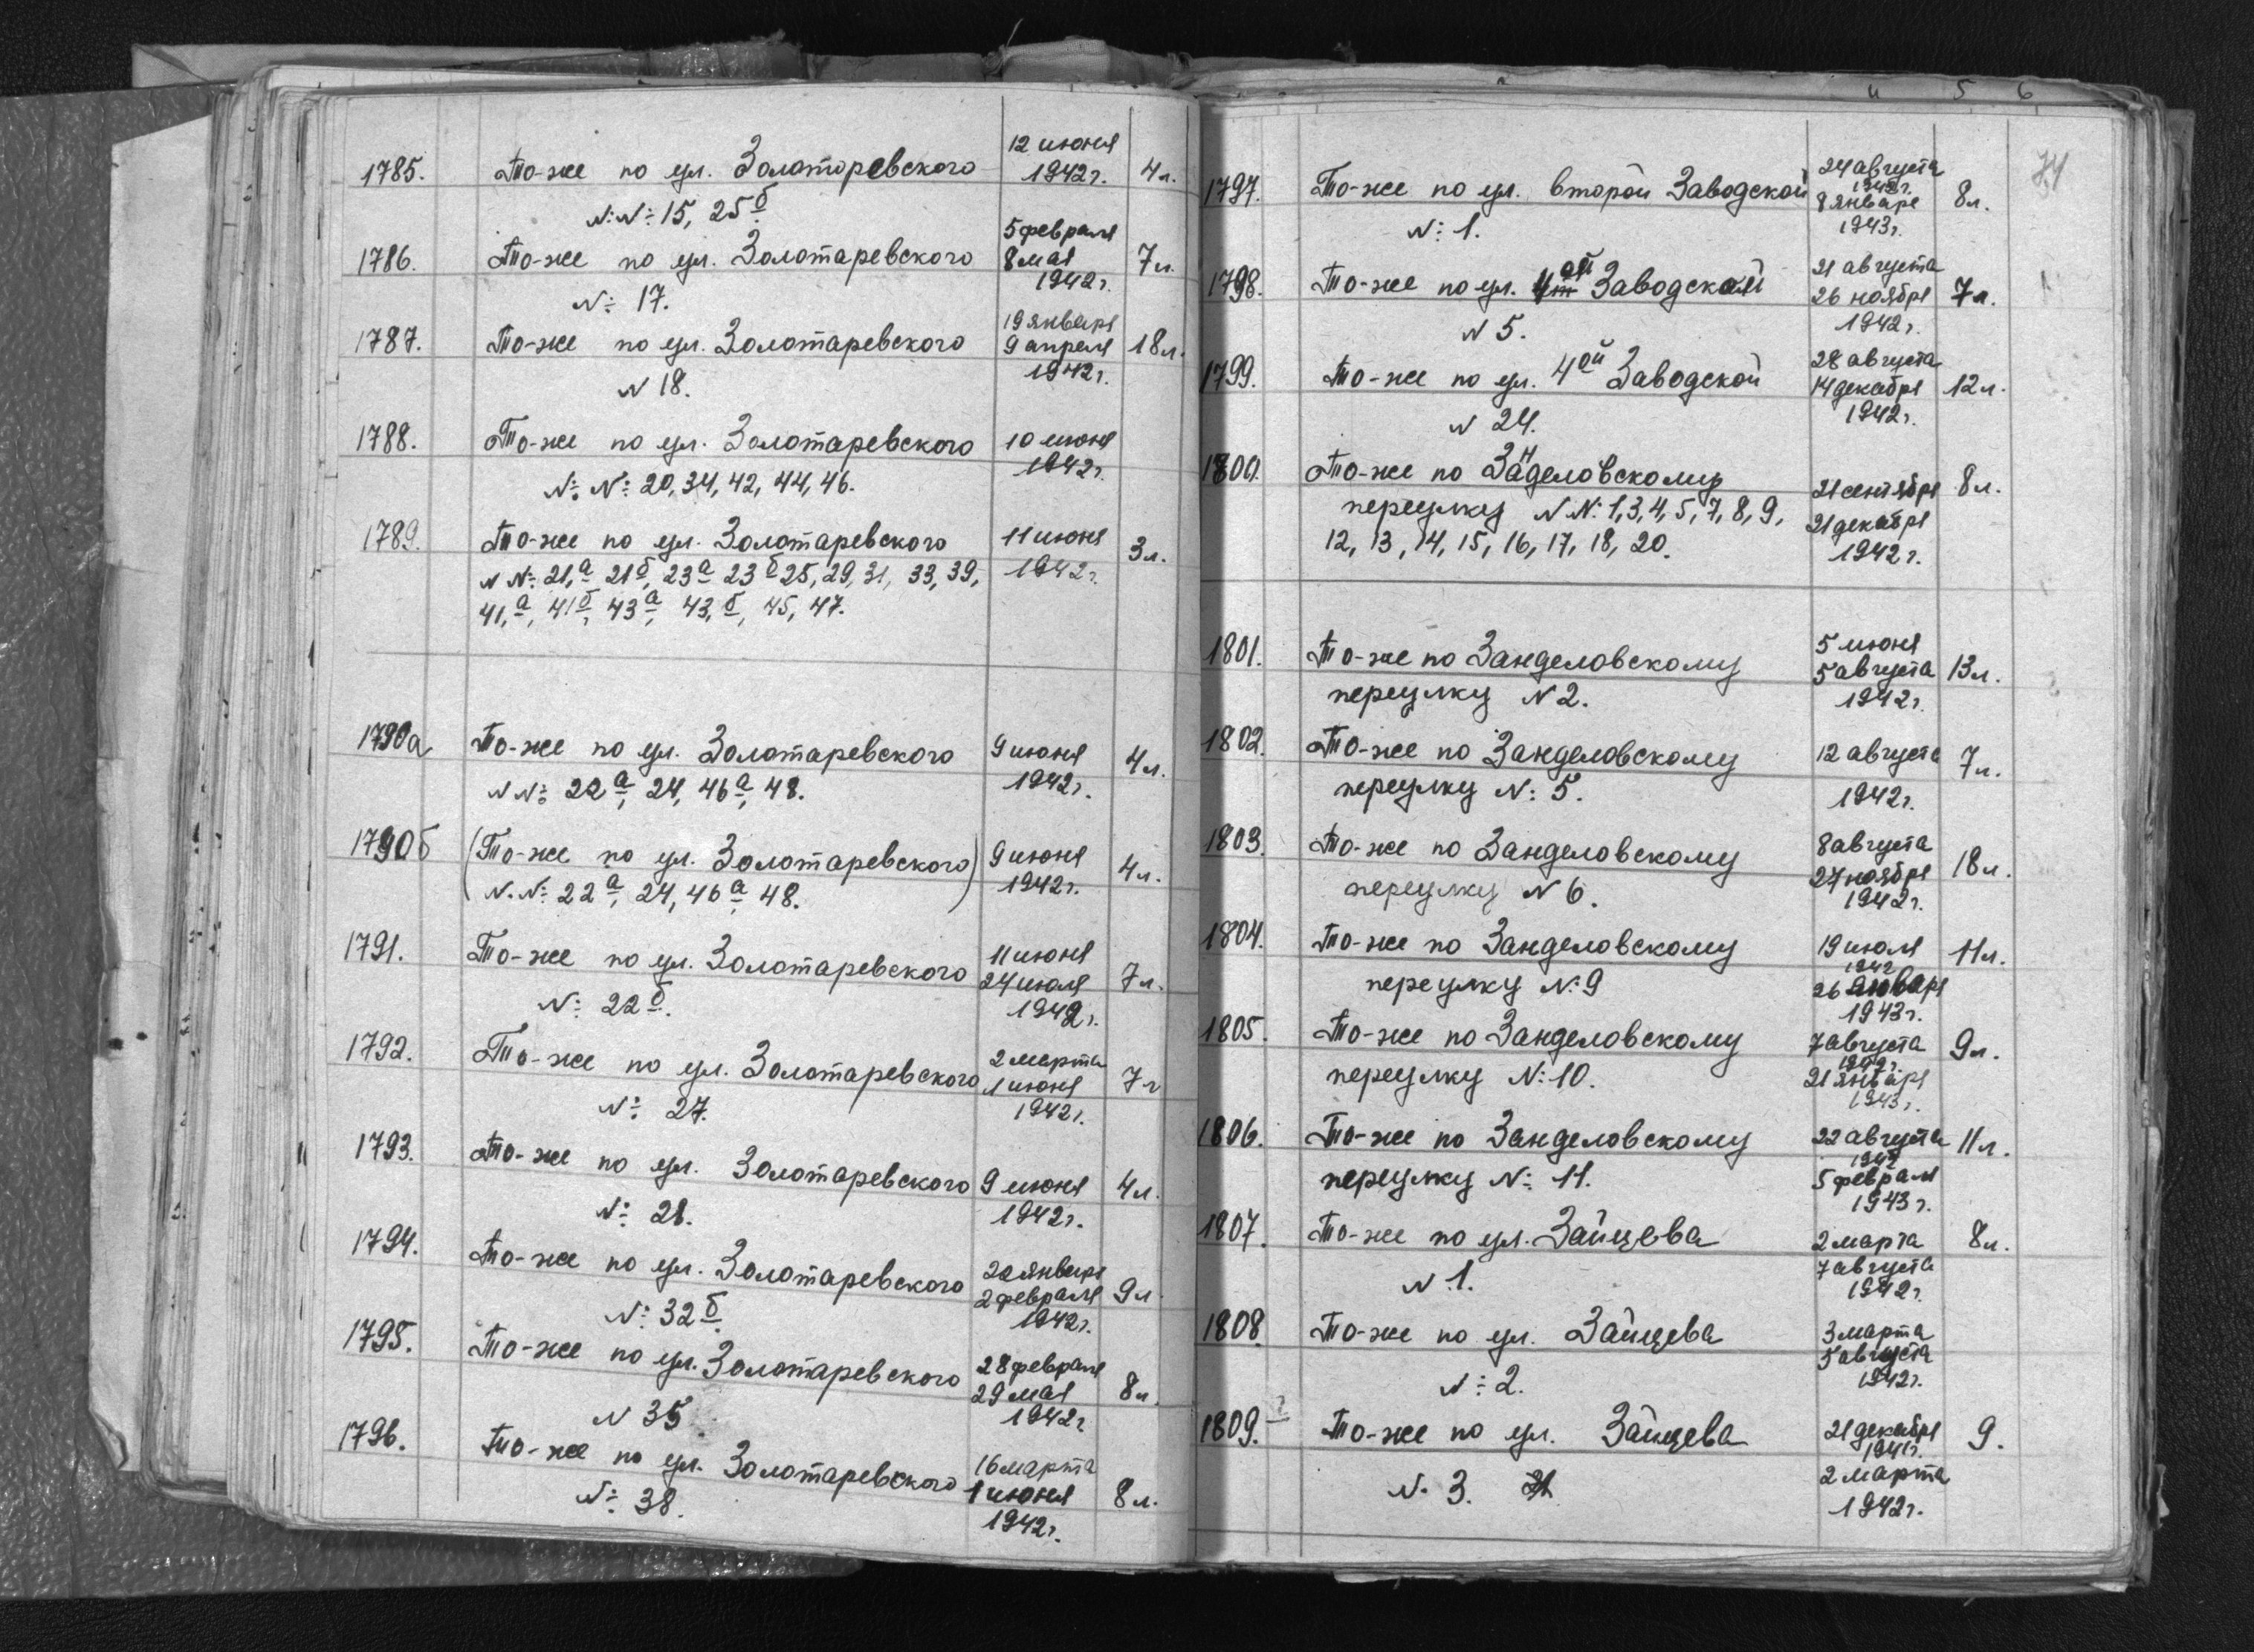 1785. То-же по ул. Золоторевского 12 июня 1942г. 4л.
№№ 15, 25б.
1786. То-же по ул. Золотаревского 5 февраля 8 мая 1942г. 7л.
№ 17.
1787. То-же по ул. Золотаревского 19 января 9 апреля 1942г. 18л.
N 18.
1788. То-же по ул. Золотаревского 10 июня 1942г.
№ № 20, 34, 42, 44, 46.
1789. То-же по ул. Золотаревского 11 июня 1942г. 3л.
N№ 21,а 21б, 23а 23б 25, 29, 31, 33, 39,
41,а, 41б, 43а, 43,б, 45, 47.
1790а То-же по ул. Золотаревского 9 июня 1942г. 4л.
N№ 22а, 24, 46а, 48.
1790б (То-же по ул. Золотаревского) 9 июня 1942г. 4л.
(N.№ 22а, 24, 46а, 48. )
1791. То-же по ул. Золотаревского 11 июня 24 июля 1942г. 7л.
№ 22б.
1792. То-же по ул. Золотаревского 2 марта 1 июня 1942г. 7л
№ 27.
1793. То-же по ул. Золотаревского 9 июня 1942г. 4л.
№ 28.
1794. То-же по ул. Золотаревского 20 января 2 февраля 1942г. 9л.
№ 32б.
1795. То-же по ул. Золотаревского 28 февраля 29 мая 1942г 8л.
N 35.
1796. То-же по ул. Золотаревского 16 марта 1 июня 1942г. 8л.
№ 38.
4 5 6
74
1797. То-же по ул. второй Заводской 24 августа 1942г. 8 января 1943г. 8л.
№ 1.
1798. То-же по ул. 4ой Заводской 21 августа 26 ноября 1942г. 7л.
N 5.
1799. То-же по ул. 4ой Заводской 28 августа 14 декабря 1942г. 12л.
N 24.
1800. То-же по Занделовскому 21 сентября 21 декабря 1942г. 8л.
переулку N№ 1, 3, 4, 5, 7, 8, 9,
12, 13, 14, 15, 16, 17, 18, 20.
1801. То-же по Занделовскому 5 июня 5 августа 1942г. 13л.
переулку N 2.
1802. То-же по Занделовскому 12 августа 1942г. 7л.
переулку № 5.
1803. То-же по Занделовскому 8 августа 27 ноября 1942г. 18л.
переулку N 6.
1804. То-же по Занделовскому 19 июля 1942 26 января 1943г. 11л.
переулку № 9
1805. То-же по Занделовскому 7 августа 1942г. 21 января 1943г. 9л.
переулку № 10.
1806. То-же по Занделовскому 22 августа 1942 5 февраля 1943г. 11л.
переулку № 11.
1807. То-же по ул. Зайцева 2 марта 7 августа 1942г. 8л.
N 1.
1808. То-же по ул. Зайцева 3 марта 5 августа 1942г.
№ 2.
1809. То-же по ул. Зайцева 21 декабря 1941г. 2 марта 1942г. 9.
N. 3.